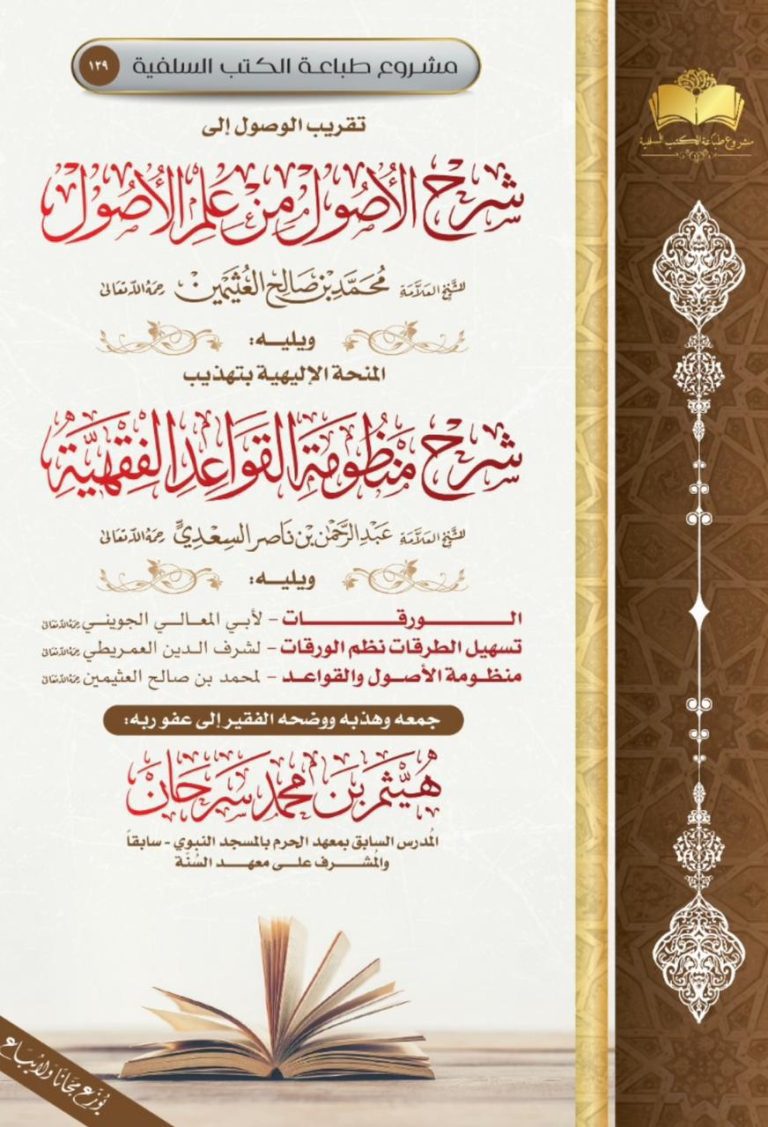 مشروع طباعة الكتب السلفية ١٣٩
مشروع طباعة الكتب السلفية
تقريب الوصول إلى
شرح الأصول من علم الأصول
للشيخ العلامة محمد بن صالح العثيمين رحمه الله تعالى
ويليه:
المنحة الإليهية بتهذيب
شرح منظومة القواعد الفقهية
للشيخ العلامة عبد الرحمن بن ناصر السعدي رحمه الله تعالى
ويليه:
الـورقـات - لأبي المعالي الجويني رحمه الله تعالى
تسهيل الطرقات نظم الورقات - لشرف الدين العمريطي رحمه الله تعالى
منظومة الأصول والقواعد - لمحمد بن صالح العثيمين رحمه الله تعالى
جمعه وهذبه ووضحه الفقير إلى عفو ربه:
هَيْثَم بن محمد سرحان
المُدرس السابق بمعهد الحرم بالمسجد النبوي - سابقاً
والمُشرف على معهد السُنّة
يُوزع مجانا ولا يباع